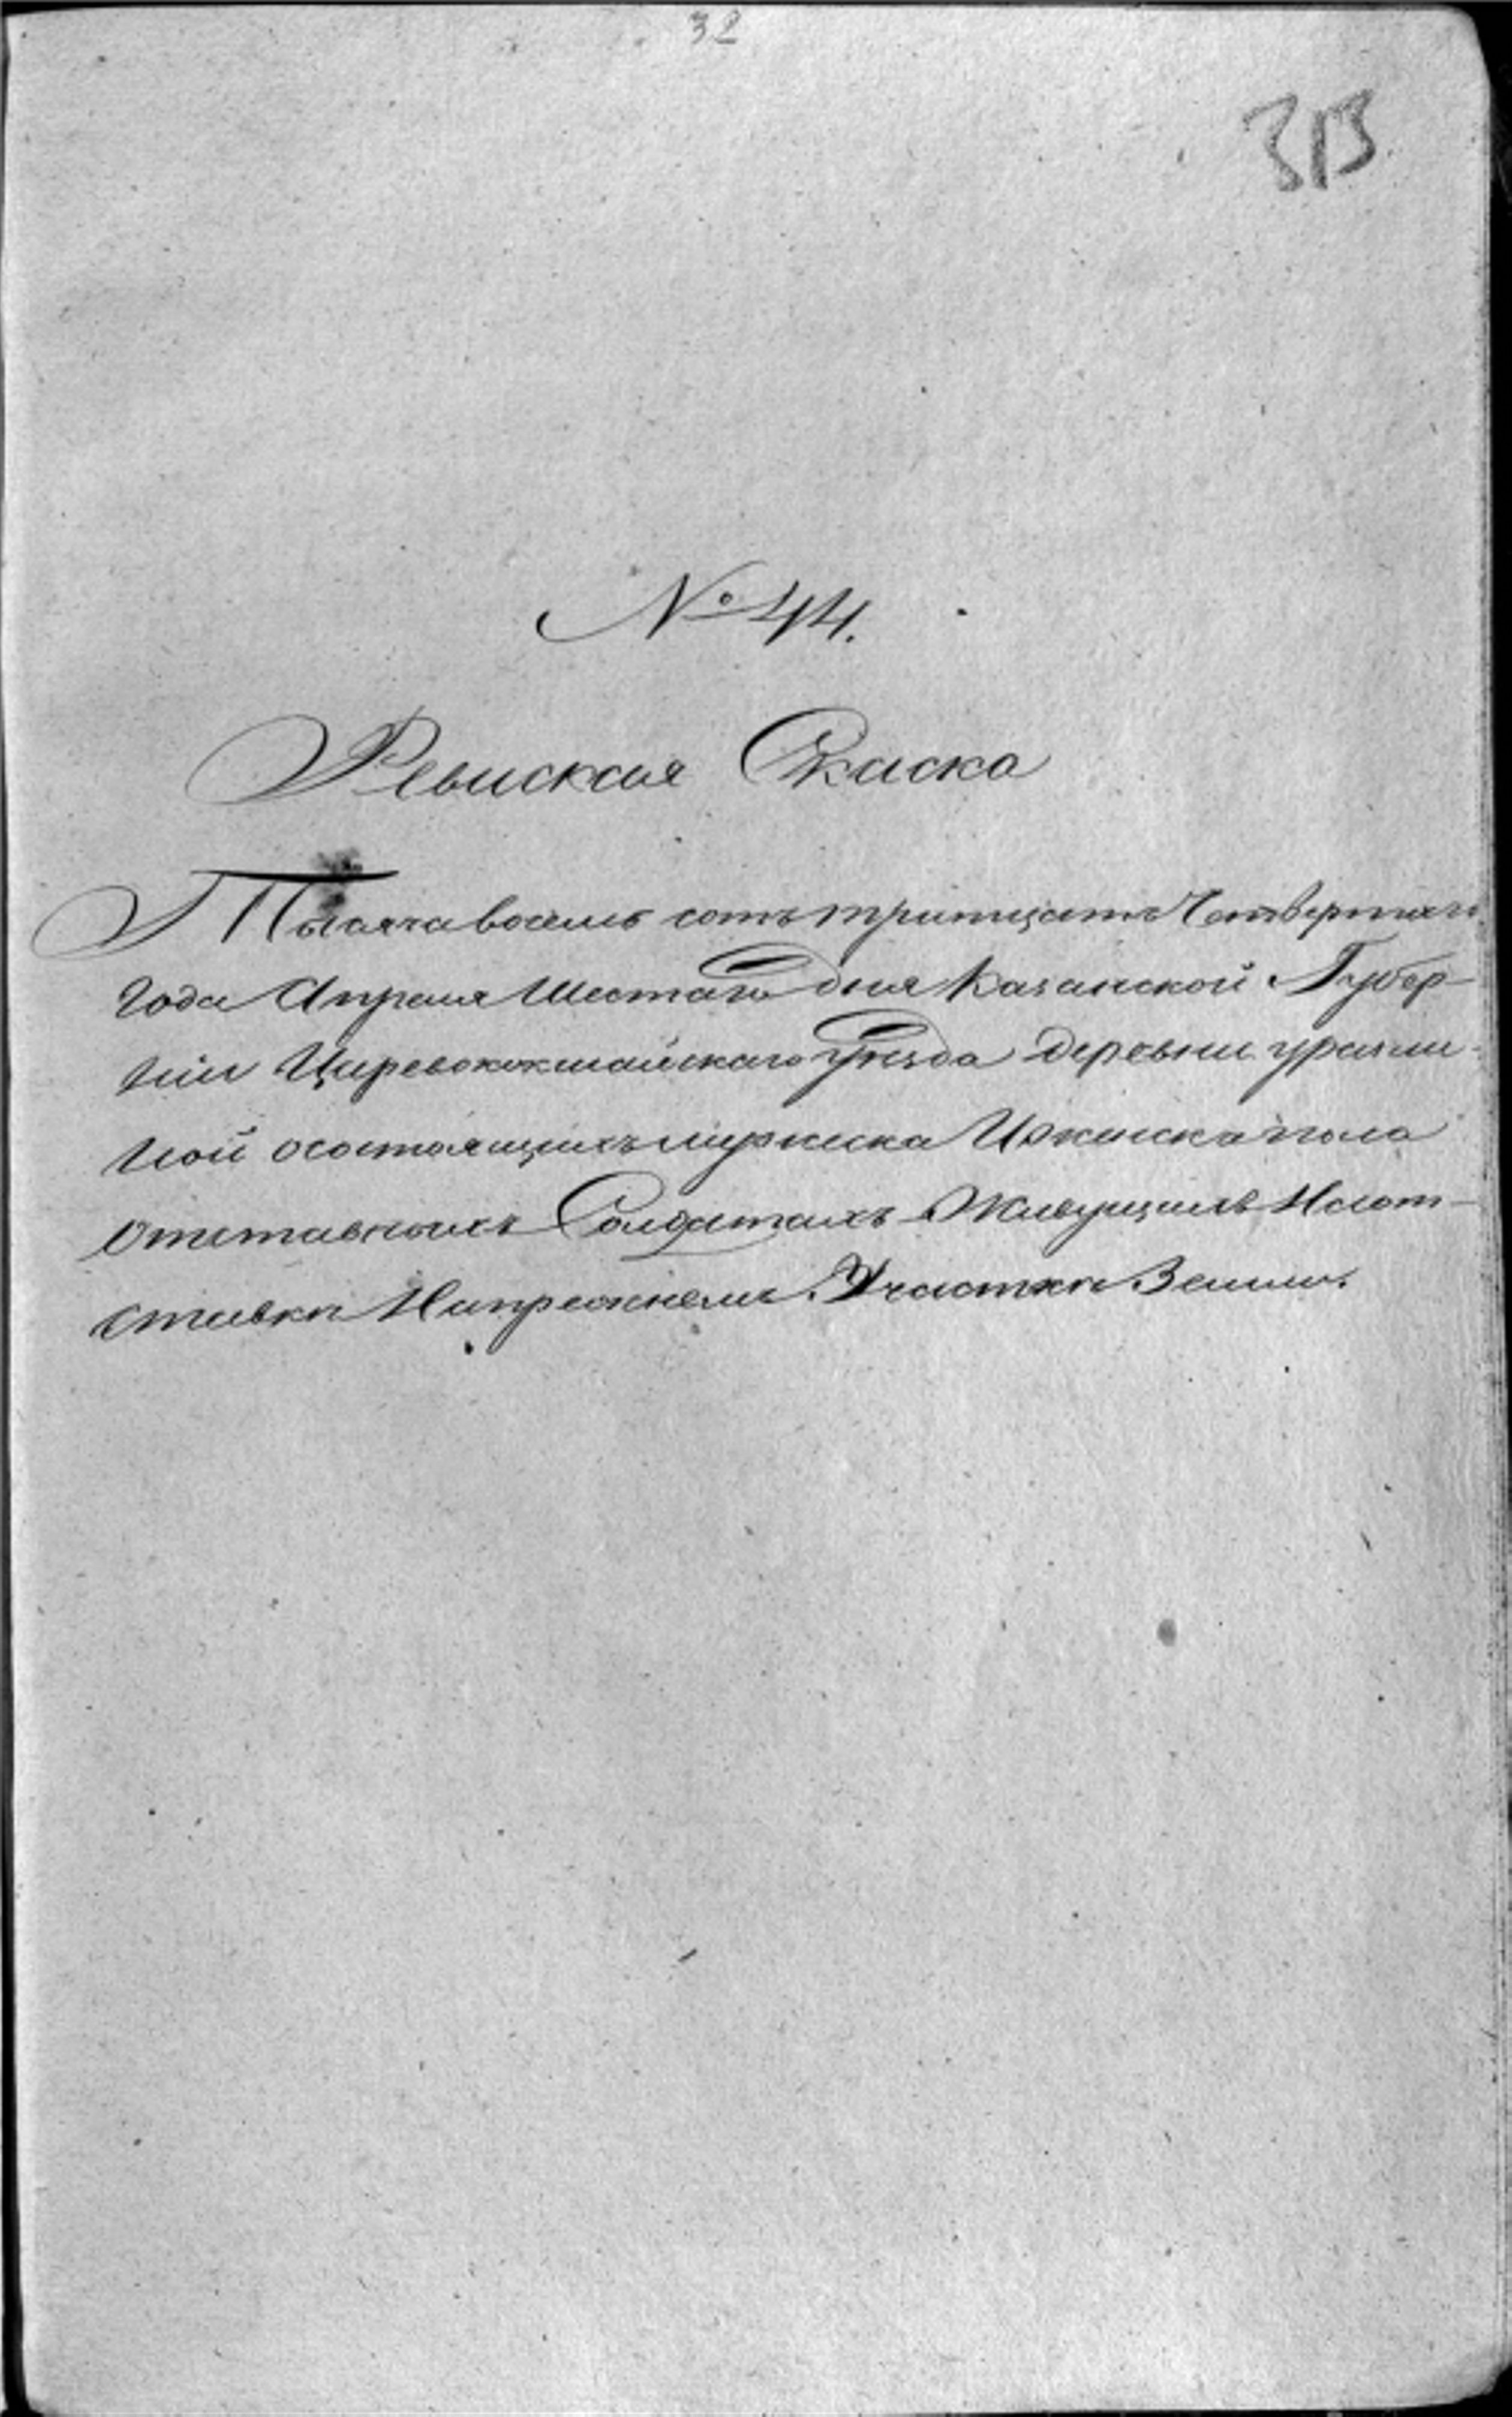 32
313
№ 44.
Ревиская Скаска
Тысяча восемь сотъ тритцать Четвертаго
года Апреля Шестаго дня Казанской Губер-
нии Царевококшайскаго Уезда деревни уразли-
ной осостоящихъ мужеска Иженска пола
отставныхъ Солдатахъ Живущихъ Наот-
ставки Напрежнемъ Участке Земли.